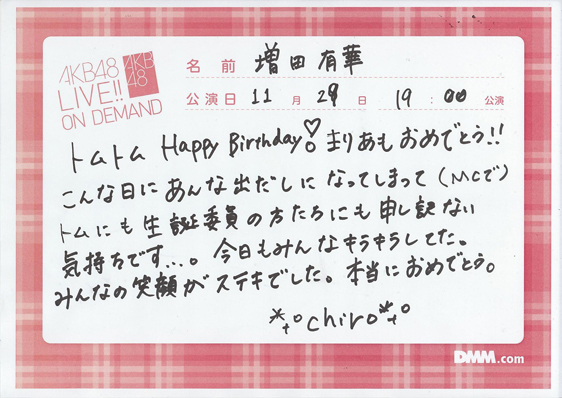 AKB48
LIVE!!
ON DEMAND
AKB
48
名前 増田有華
公演日 11月29日 19:00公演
トムトム Happy Birthday♡! まりあもおめでとう!!
こんな日にあんな出だしになってしまって(MCで)
トムにも生誕委員の方たちにも申し訳ない
気持ちです…。今日もみんなキラキラしてた。
みんなの笑顔がステキでした。本当におめでとう。
*+°chiro*+°
DMM.com